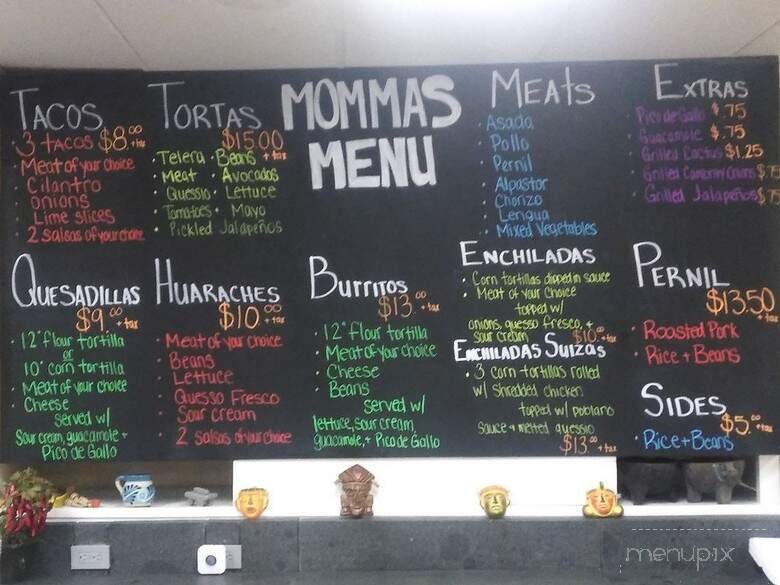 MOMMAS
MENU
TACOS
· 3 tacos $8.00 + tax
· Meat of your choice
· Cilantro
· onions
· Lime slices
· 2 salsas of your choice
TORTAS
$15.00 + tax
· Telera · Beans
· Meat · Avocados
· Quessio · Lettuce
· Tomatoes · Mayo
· Pickled Jalapeños
MEATS
· Asada
· Pollo
· Pernil
· Alpastor
· Chorizo
· Lengua
· Mixed Vegetables
EXTRAS
· Pico de Gallo $.75
· Guacamole $.75
· Grilled Cactus $1.25
· Grilled Cambray Onions $.75
· Grilled Jalapeños $.75
QUESADILLAS
$9.00 + tax
· 12" flour tortilla
or
· 10" corn tortilla
· Meat of your choice
· Cheese
served w/
Sour cream, guacamole +
Pico de Gallo
HUARACHES
$10.00 + tax
· Meat of your choice
· Beans
· Lettuce
· Quesso Fresco
· Sour cream
· 2 salsas of your choice
BURRITOS
$13.00 + tax
· 12" flour tortilla
· Meat of your choice
· Cheese
· Beans
served w/
lettuce, sour cream,
guacamole, + Pico de Gallo
ENCHILADAS
· Corn tortillas dipped in sauce
· Meat of your choice
topped w/
onions, quesso fresco, +
sour cream $10.00 + tax
ENCHILADAS SUIZAS
· 3 corn tortillas rolled
w/ shredded chicken
topped w/ poblano
sauce + melted quessio
$13.00 + tax
PERNIL
$13.50 + tax
· Roasted Pork
· Rice + Beans
SIDES
$5.00 + tax
· Rice + Beans
menupix